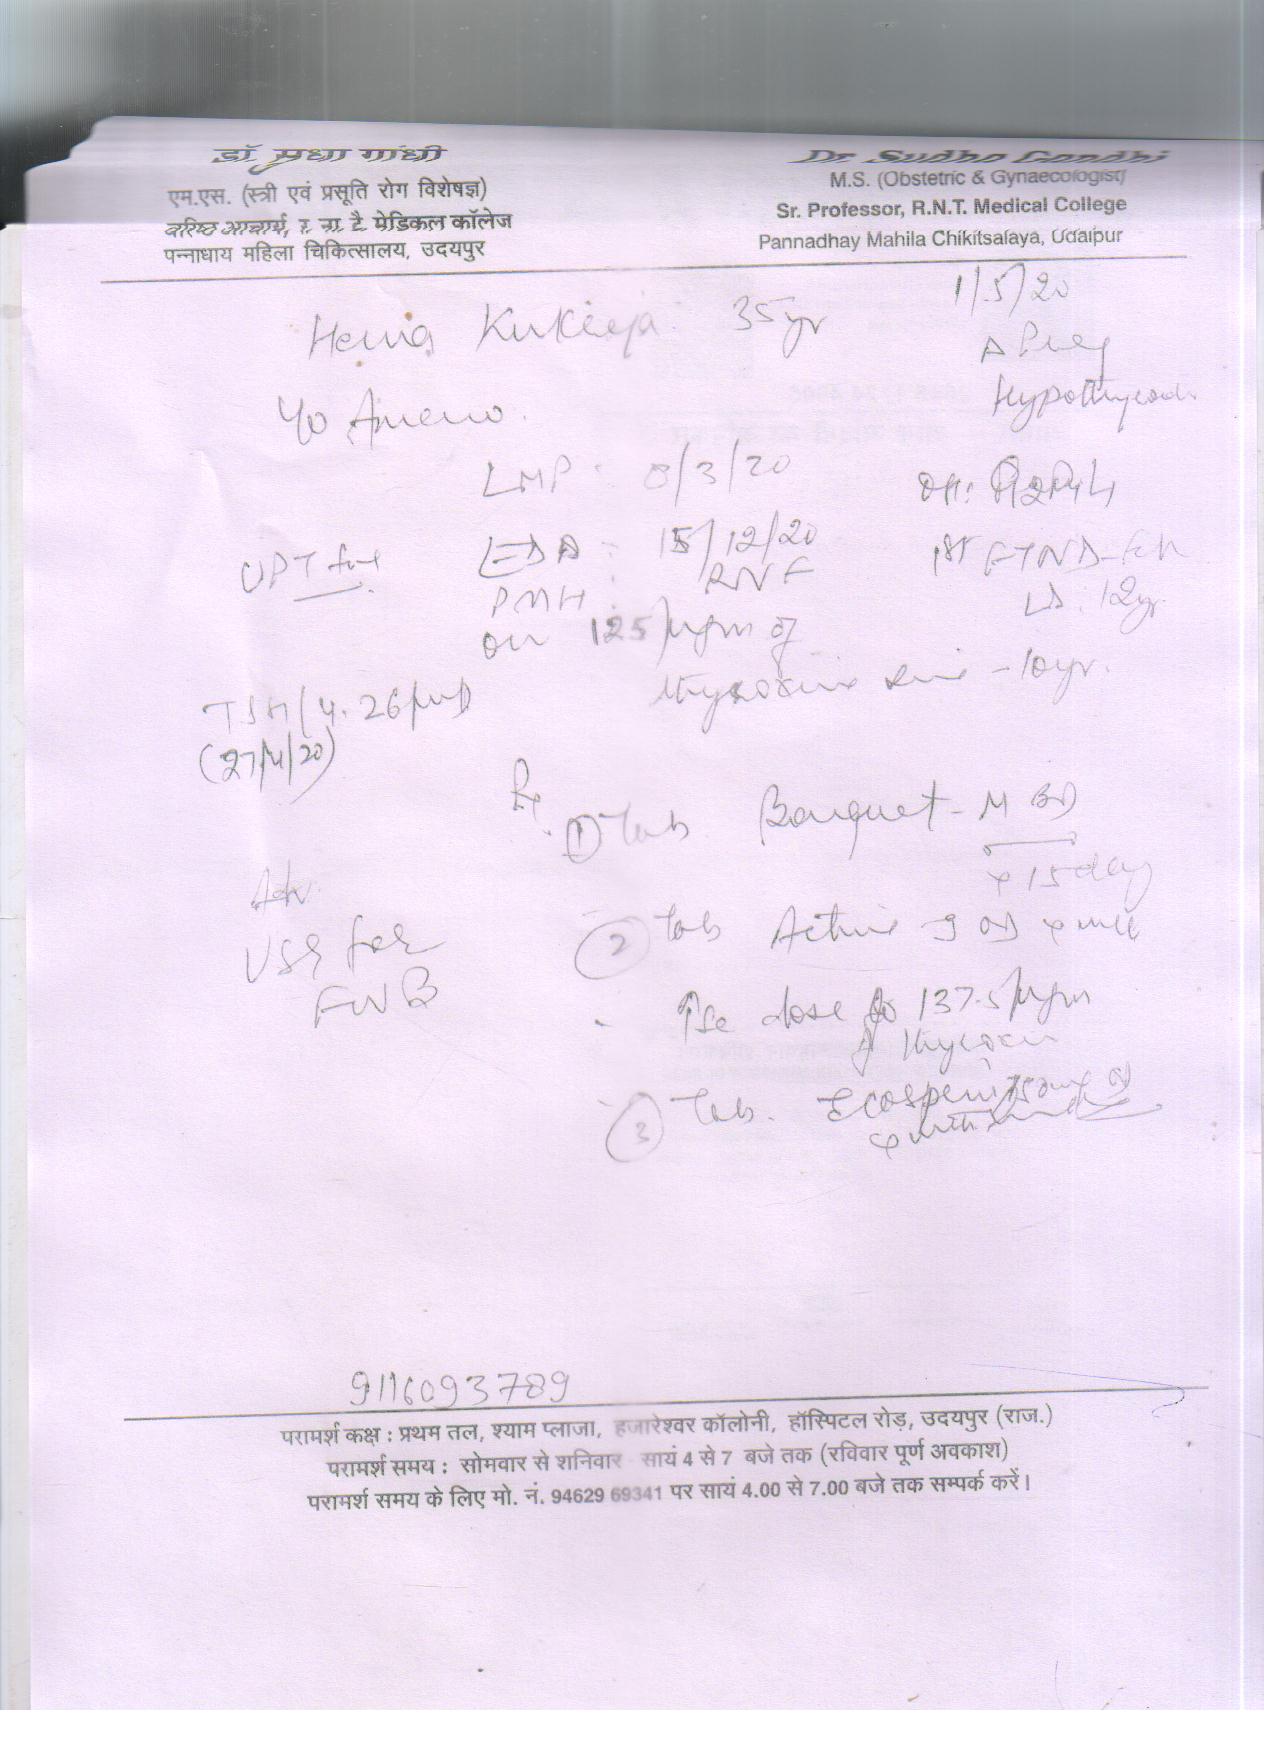 डॉ सुधा गांधी
एम.एस. (स्त्री एवं प्रसूति रोग विशेषज्ञ)
वरिष्ठ आचार्य, र. ना. टै. मेडिकल कॉलेज
पन्नाधाय महिला चिकित्सालय, उदयपुर
Dr Sudha Gandhi
M.S. (Obstetric & Gynaecologist)
Sr. Professor, R.N.T. Medical College
Pannadhay Mahila Chikitsalaya, Udaipur
1/5/20
Hema Kukreja 35yr
Δ Preg
Hypothyroid
Ameno.
LMP : 8/3/20
EDD : 15/12/20
UPT +ve
PMH :
1st FTND
12yr
on 125 µgm of
thyroxine since - 10yr.
TSH / 4.26
(27/4/20)
Rx
① Tab. Bouquet - M BD
x 15 day
Adv
② Tab Active 9 OD
USG for
FWB
↑se dose to 137.5 µgm
of thyroxin
③ Tab. Ecosprin 75mg
9116093789
परामर्श कक्ष : प्रथम तल, श्याम प्लाजा, हजारेश्वर कॉलोनी, हॉस्पिटल रोड़, उदयपुर (राज.)
परामर्श समय : सोमवार से शनिवार - सायं 4 से 7 बजे तक (रविवार पूर्ण अवकाश)
परामर्श समय के लिए मो. नं. 94629 69341 पर सायं 4.00 से 7.00 बजे तक सम्पर्क करें।